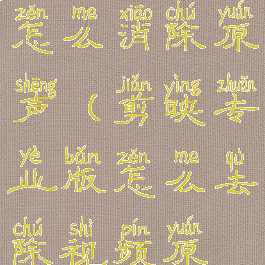 zěn me xiāo chú yuán
怎么消除原
shēng jiǎn yìng zhuān
声（剪映专
yè bǎn zěn me qù
业版怎么去
chú shì pín yuán
除视频原